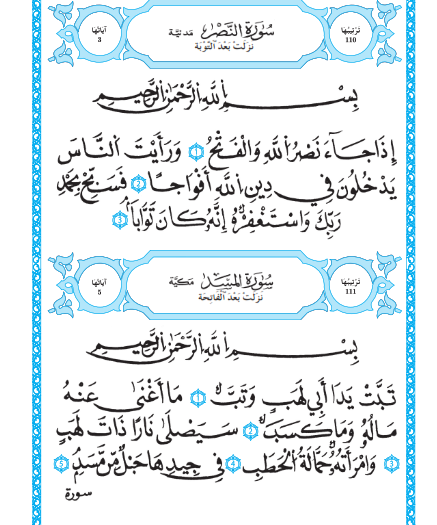 ترتيبها 110 سُورَةُ النَّصْرِ مَدنيَّة آياتُها 3
نَزَلَتْ بَعْدَ التَّوْبَة
بِسْمِ اللَّهِ الرَّحْمَٰنِ الرَّحِيمِ
إِذَا جَاءَ نَصْرُ اللَّهِ وَالْفَتْحُ ١ وَرَأَيْتَ النَّاسَ
يَدْخُلُونَ فِي دِينِ اللَّهِ أَفْوَاجًا ٢ فَسَبِّحْ بِحَمْدِ
رَبِّكَ وَاسْتَغْفِرْهُ إِنَّهُ كَانَ تَوَّابًا ٣
ترتيبها 111 سُورَةُ المَسَد مَكيَّة آياتُها 5
نَزَلَتْ بَعْدَ الْفَاتِحَة
بِسْمِ اللَّهِ الرَّحْمَٰنِ الرَّحِيمِ
تَبَّتْ يَدَا أَبِي لَهَبٍ وَتَبَّ ١ مَا أَغْنَىٰ عَنْهُ
مَالُهُ وَمَا كَسَبَ ٢ سَيَصْلَىٰ نَارًا ذَاتَ لَهَبٍ
٣ وَامْرَأَتُهُ حَمَّالَةُ الْحَطَبِ ٤ فِي جِيدِهَا حَبْلٌ مِّن مَّسَدٍ ٥
سورة